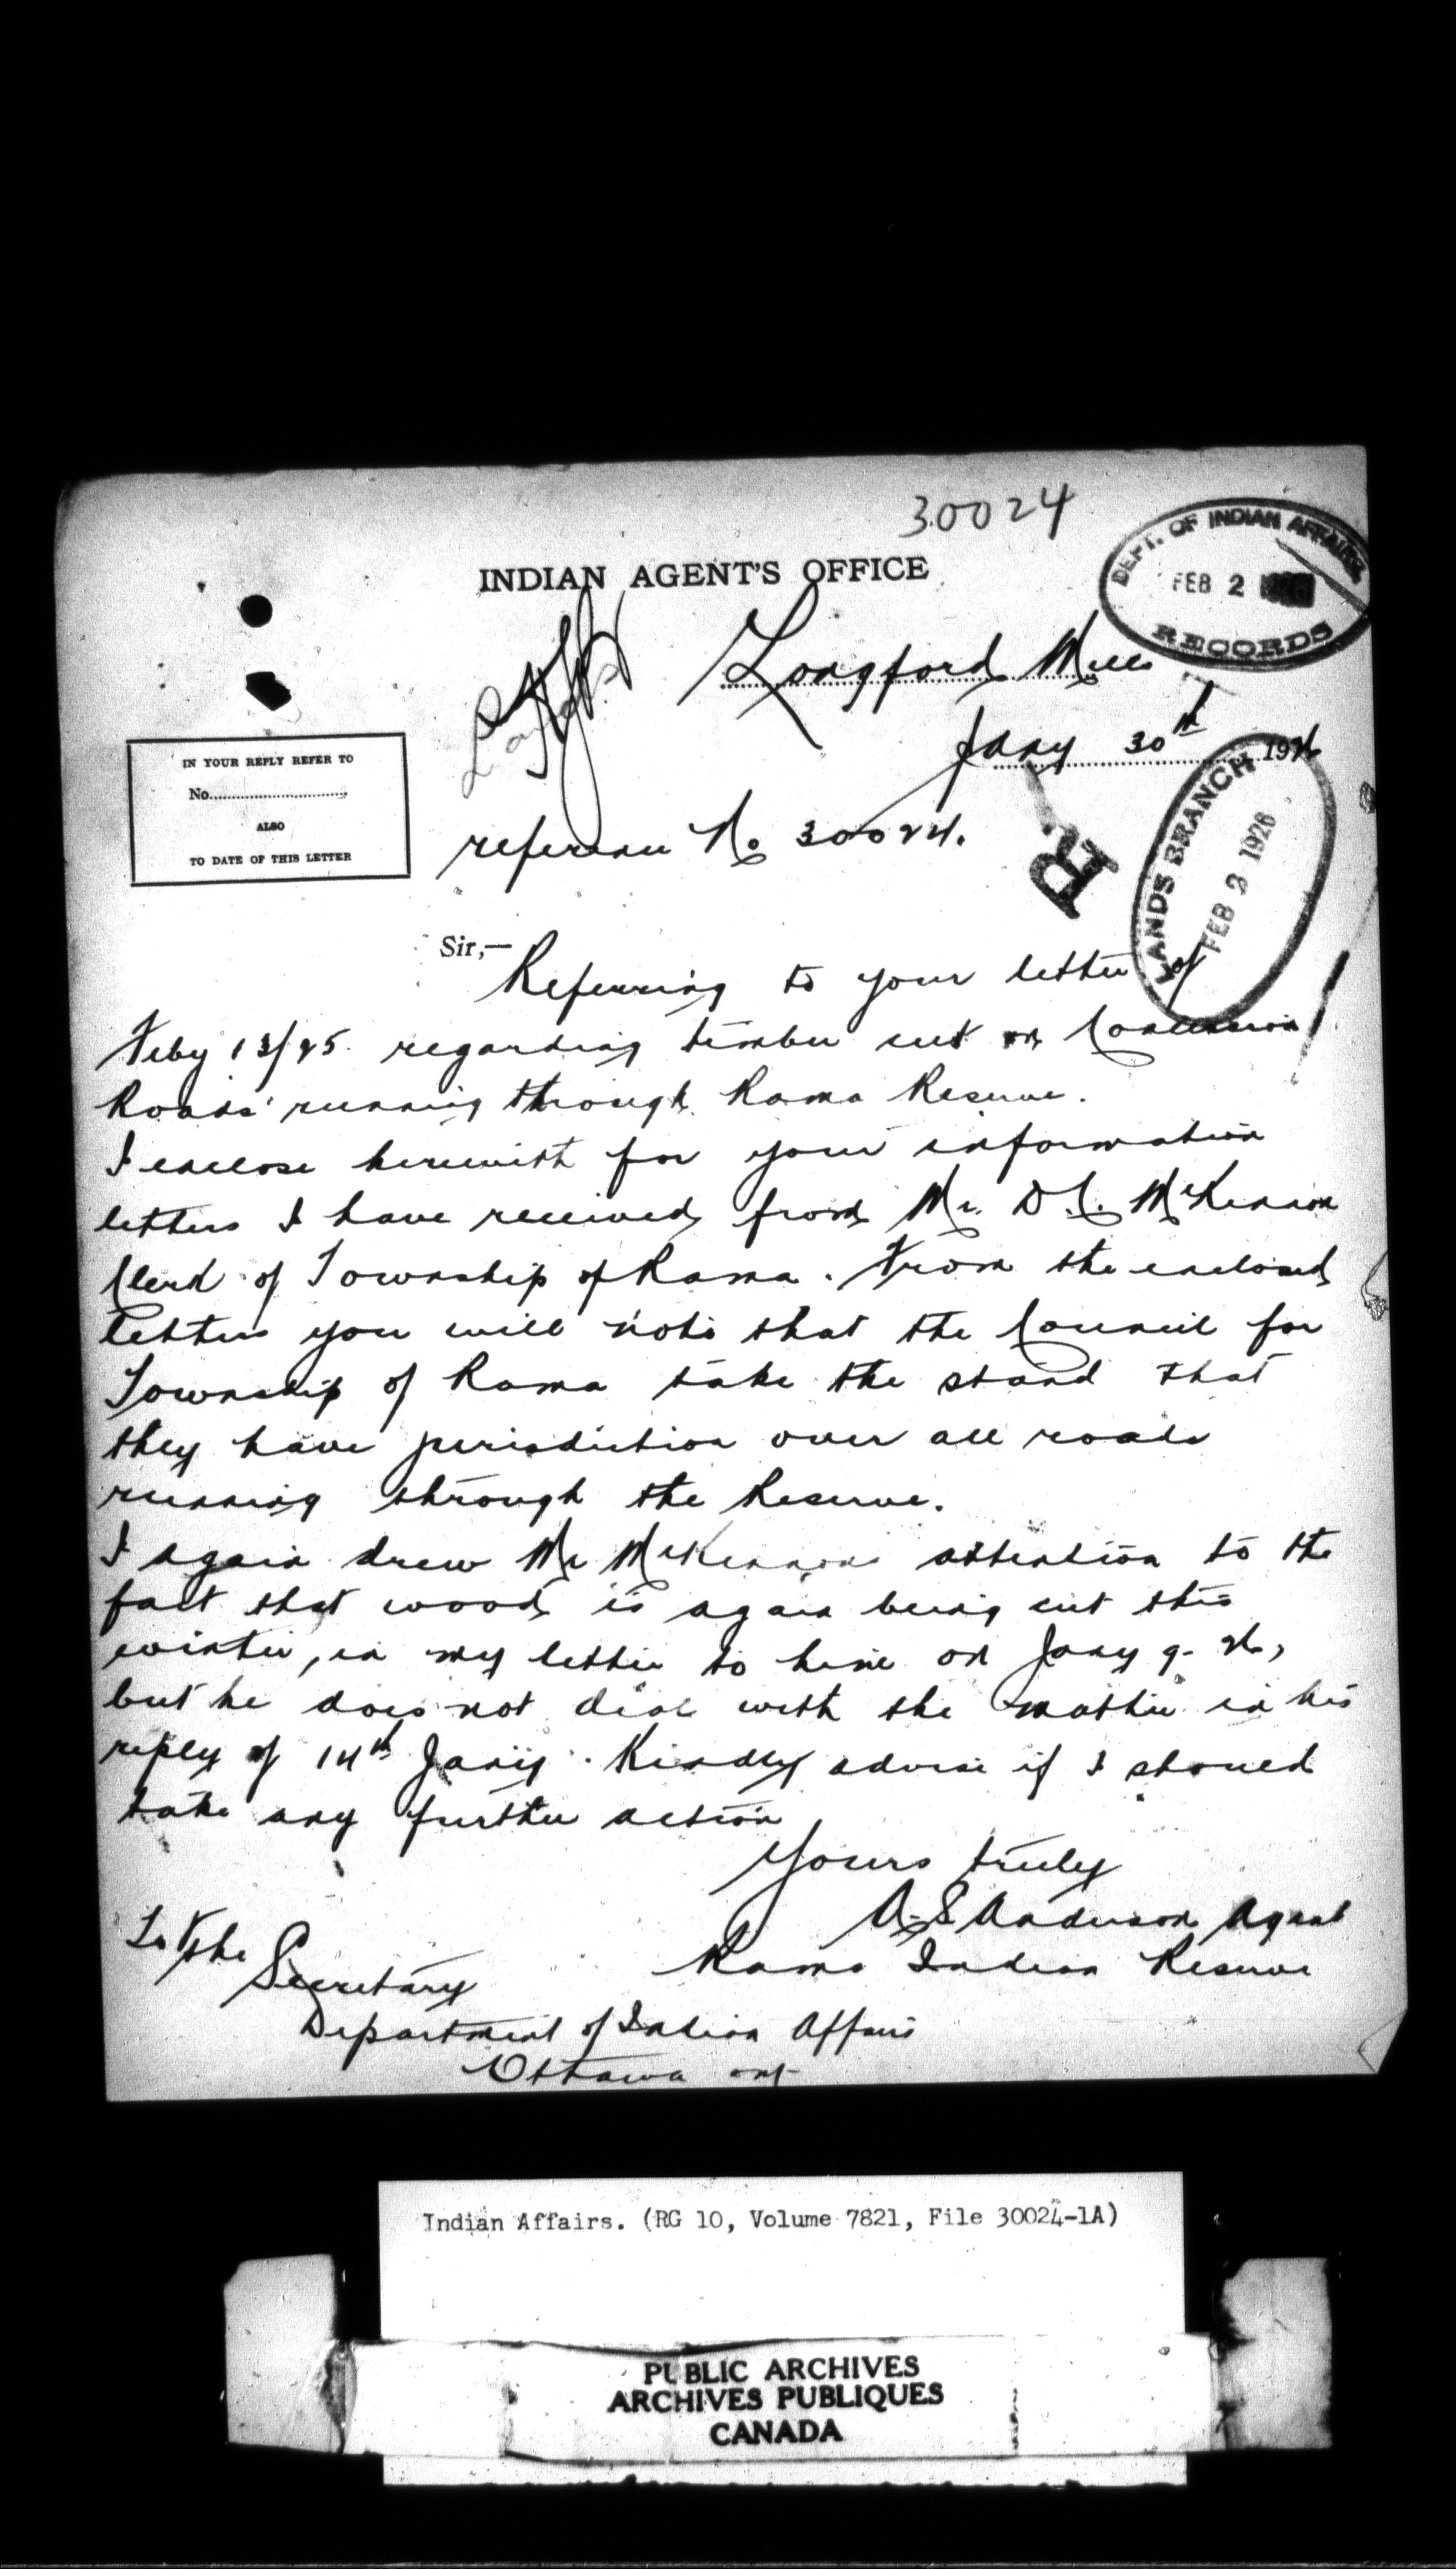 30024
DEPT. OF INDIAN AFFAIRS
FEB 2
RECORDS
INDIAN AGENT'S OFFICE
Longford Mills
Jany 30th 1926
IN YOUR REPLY REFER TO
No
ALSO
TO DATE OF THIS LETTER
LANDS BRANCH
FEB 3 1926
R
reference No 30024.
Sir,—
Referring to your letter of
Feby 13/25 regarding timber cut on Concession
Roads running through Rama Reserve.
I enclose herewith for your information
letters I have received from Mr. D.C. McKinnon
Clerk of Township of Rama. From the enclosed
letters you will note that the Council for
Township of Rama take the stand that
they have jurisdiction over all roads
running through the Reserve.
I again drew Mr McKinnons attention to the
fact that wood is again being cut this
winter, in my letter to him on Jany 9. 26,
but he does not deal with the matter in his
reply of 14th Jany. Kindly advise if I should
take any further action
Yours truly
A. S. Anderson Agent
Rama Indian Reserve
To the
Secretary
Department of Indian Affairs
Ottawa ont
Indian Affairs. (RG 10, Volume 7821, File 30024-1A)
PUBLIC ARCHIVES
ARCHIVES PUBLIQUES
CANADA